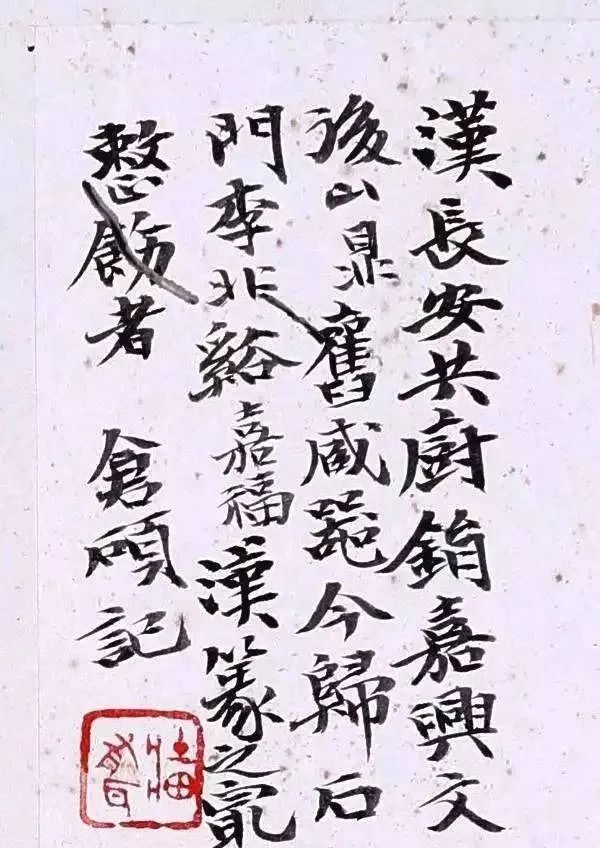 漢長安共廚鋗嘉興文
後山鼎舊臧器今歸石
門李非谿嘉福漢篆之冣
整飭者 倉碩記